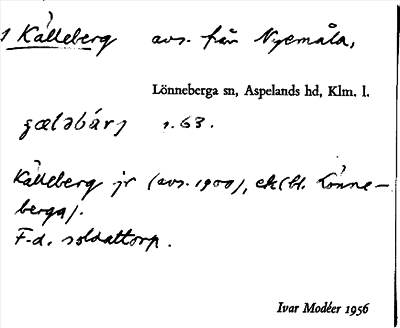 1 Källeberg avs. från Nyemåla,
Lönneberga sn, Aspelands hd, Klm. l.
s. 63.
Källeberg jr (avs. 1900), ek (bl. Lönne-
berga).
F.d. soldattorp.
Ivar Modéer 1956